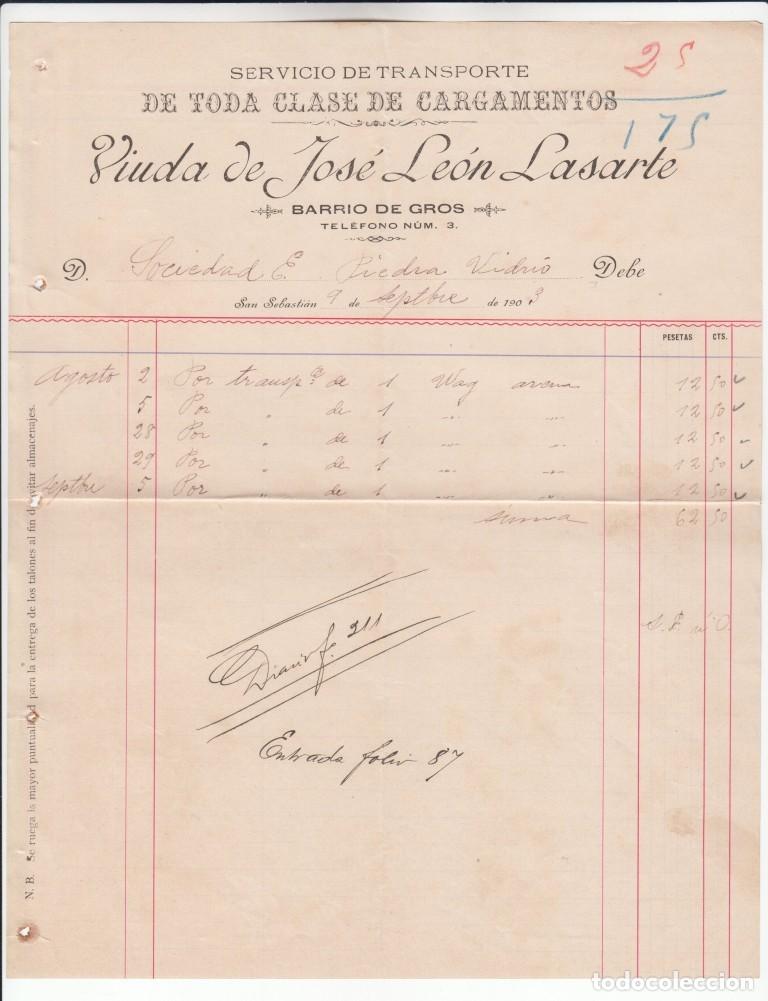 25
175
SERVICIO DE TRANSPORTE
DE TODA CLASE DE CARGAMENTOS
Viuda de José León Lasarte
BARRIO DE GROS
TELÉFONO NÚM. 3.
D. Sociedad E. Piedra Vidrio Debe
San Sebastián 9 de Septbre de 1903
PESETAS CTS.
Agosto 2 Por transpte de 1 Wag arena 12 50
5 Por " de 1 " " 12 50
28 Por " de 1 " " 12 50
29 Por " de 1 " " 12 50
Septbre 5 Por " de 1 " " 12 50
suma 62 50
Diario f. 211
Entrada folio 87
N. B. Se ruega la mayor puntualidad para la entrega de los talones al fin de evitar almacenajes.
todocoleccion